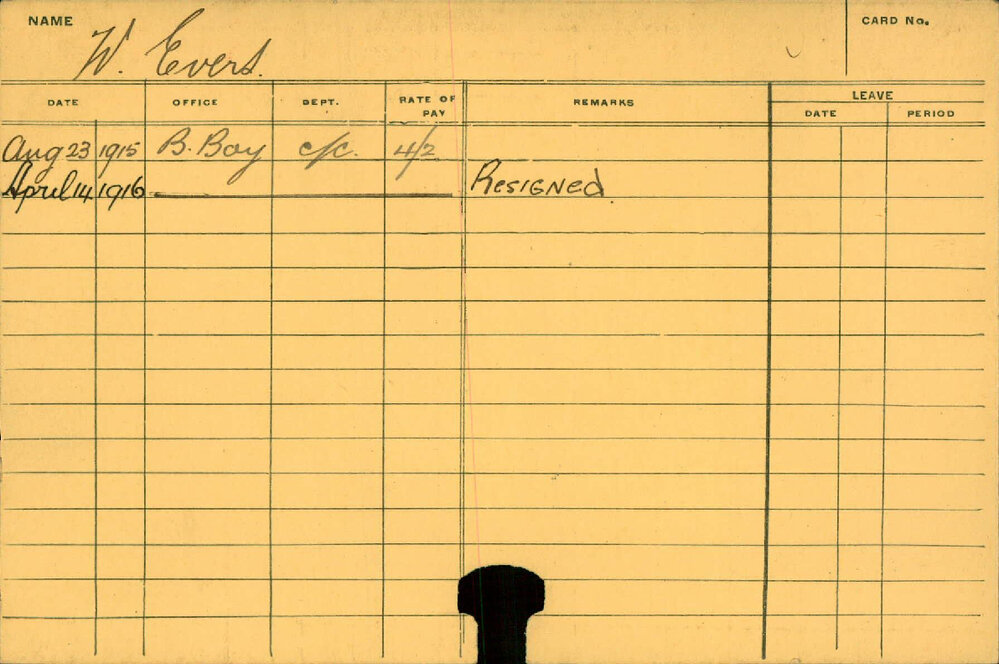 NAME W. Evers. CARD No.
DATE OFFICE DEPT. RATE OF PAY REMARKS LEAVE
DATE PERIOD
Aug 23 1915 B. Boy c/c. 4/2
April 14 1916 Resigned.